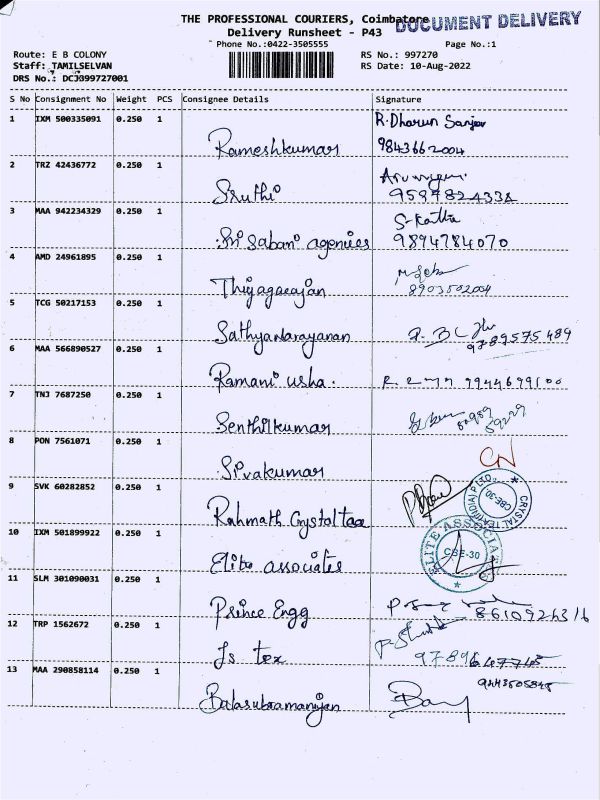 THE PROFESSIONAL COURIERS, Coimbatore
DOCUMENT DELIVERY
Delivery Runsheet - P43
Phone No.:0422-3505555 Page No.:1
Route: E B COLONY RS No.: 997270
Staff: TAMILSELVAN RS Date: 10-Aug-2022
DRS No.: DCJ099727001
S No Consignment No Weight PCS Consignee Details Signature
1 IXM 500335091 0.250 1 R. Dharun Sanjeev
Rameshkumar 9843662004
2 TRZ 42436772 0.250 1
Sruthi
3 MAA 942234329 0.250 1
Sri Sabari agencies 9894784070
4 AMD 24961895 0.250 1
Thiyagarajan 8903502004
5 TCG 50217153 0.250 1
SathyaNarayanan 9789575489
6 MAA 566890527 0.250 1
Ramani usha.
7 TNJ 7687250 0.250 1
Senthilkumar
8 PON 7561071 0.250 1
Sivakumar CN
9 SVK 60282852 0.250 1
CRYSTAL TEA (INDIA) P LTD. CBE-30
Rahmath Crystal tea
10 IXM 501899922 0.250 1
ELITE ASSOCIATES CBE-30
Elite associates
11 SLM 301090031 0.250 1
Prince Engg
12 TRP 1562672 0.250 1
Js tex
13 MAA 290858114 0.250 1
Balasubramaniyan